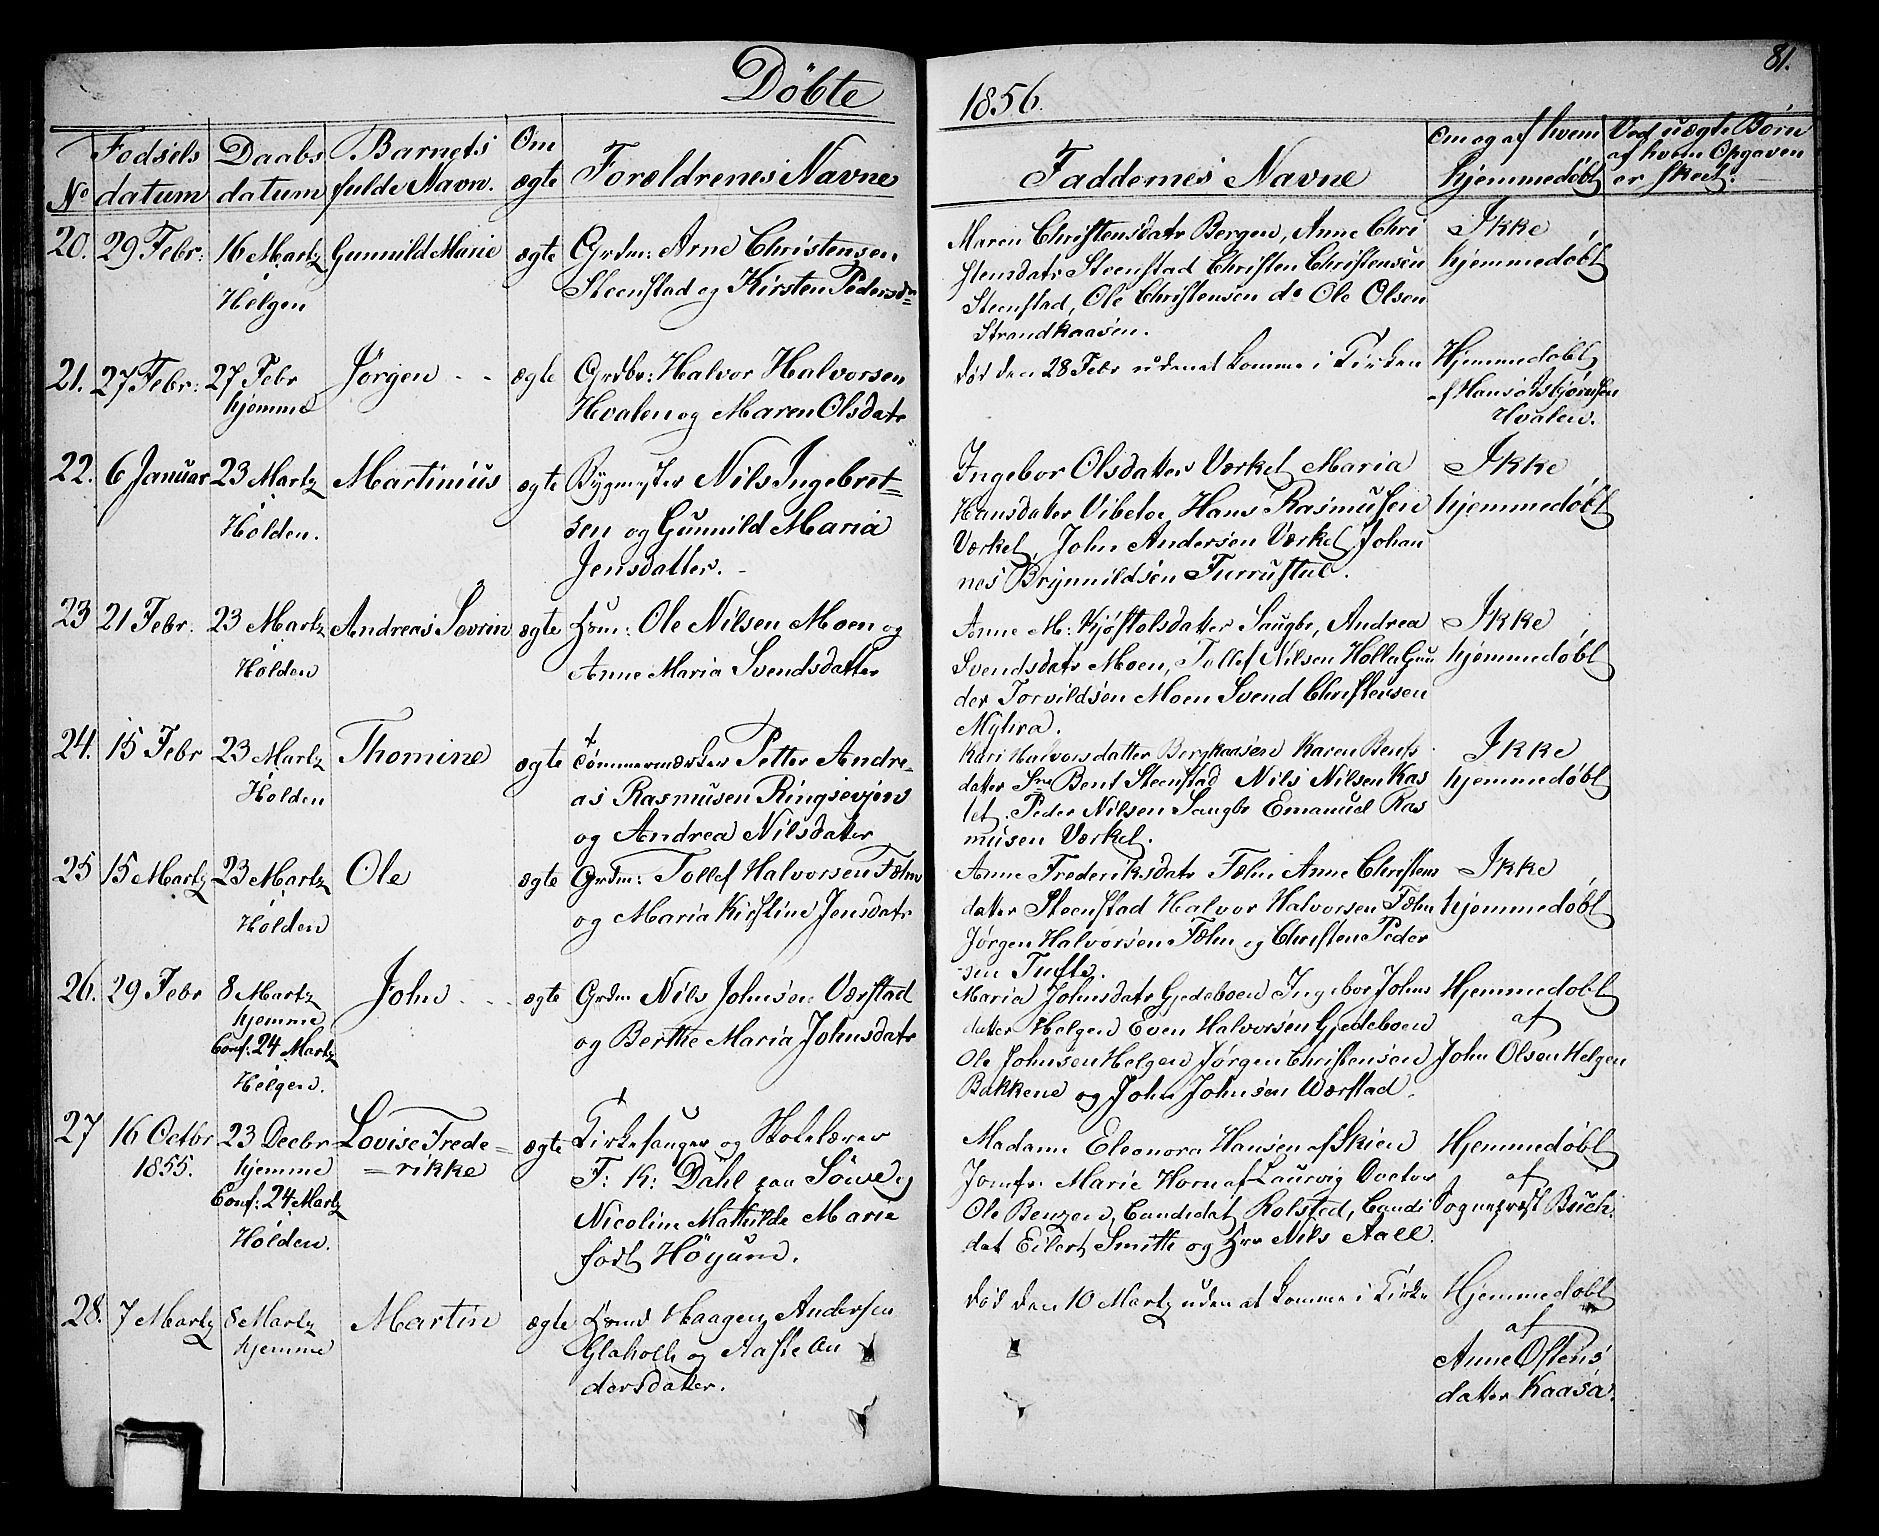 Döbte
1856.
81.
No
Fodsels datum
Daabs datum
Barnets fulde Navn.
Om ægte
Forældrenes Navne
Faddernes Navne
Om og af hvem hjemmedöbt
Ved uægte Börn af hvem Opgaven er skeet.
20. 29 Febr: 16 Martz Gunnild Marie ægte Grdm: Arne Christensen
i Helgen
Steenstad og Kirsten Pedersdr
Maren Christensdatr Bergen, Anne Chri
stensdatr Steenstad Christen Christensen
Steenstad, Ole Christensen do Ole Olsen
Strandkaasen.
Ikke
hjemmedöbt
21. 27 Febr: 27 Febr Jörgen - - ægte Grdbr: Halvor Halvorsen
hjemme
Hvalen og Maren Olsdatr
död den 28 Febr uden at komme i Kirken
Hjemmedobt
af Hans Asbjörnsen
Hvalen.
22. 6 Januar 23 Martz Martinius ægte Bygmester Nils Ingebret-
i Holden.
sen og Gunnild Maria
Jensdatter. -
Ingebor Olsdatter Værket Maria
Hansdatter Vibetoe Hans Rasmusen
Værket, John Andersen Værket Johan
nes Brynnildsen Furrustul.
Ikke
hjemmedöbt
23 21 Febr. 23 Martz Andreas Sevrin ægte Hsm: Ole Nilsen Moen og
Holden
Anne Maria Svendsdatter
Anne M: Kjöstolsdatter Saugbr, Andrea
Svendsdatr Moen, Tollef Nilsen Holla Gun
der Torvildsen Moen Svend Christensen
Myhra.
Ikke
hjemmedöbt
24. 15 Febr 23 Martz Thomine ægte Tömmermærker Petter Andre-
i Holden
as Rasmusen Ringsevjen
og Andrea Nilsdatter
Kari Halvorsdatter Bergkaasene Karen Bents
datter Sne Bent Steenstad Nils Nilsen Kas
tet. Peder Nilsen Saugbr Emanuel Ras
musen Værket.
Ikke
hjemmedöbt
25 15 Martz 23 Martz Ole ægte Grdm: Tollef Halvorsen Fæhn
i Holden
og Maria Kirstine Jensdatr
Anne Frederiksdatr Fæhn Anne Christens
datter Steenstad Halvor Halvorsen Fæhn
Jörgen Halvorsen Fæhn og Christen Peder
sen Tufte.
Ikke
hjemmedöbt
26. 29 Febr 8 Martz John - - ægte Grdm Nils Johnsen Værstad
hjemme
Conf: 24 Martz
i Helgen.
og Berthe Maria Johnsdatr
Maria Johnsdatr Gjedeboen Ingebor Johns
datter Helgen Even Halvorsen Gjedeboen
Ole Johnsen Helgen Jörgen Christensen
Bakkene og John Johnsen Værstad.
Hjemmedobt
af
John Olsen Helgen
27 16 Octbr 23 Decbr Lovise Frede- ægte Kirkesanger og Skolelærer
1855. hjemme =rikke F: K: Dahl paa Sönse og
Conf: 24 Martz
i Holden.
Nicoline Mathilde Marie
födt Höyum.
Madame Eleonora Hansen af Skien
Jomfr: Marie Horn af Laurvig Doctor
Ole Benzen, Candidat Rolsted, Candi
dat Eilert Smith og Hrr Nils Aall.
Hjemmedöbt
af
Sognepræst Buch.
28. 7 Martz 8 Martz Martin ægte Hsmd Haagen Andersen
hjemme
Glaholt og Aaste An
dersdatter.
död den 10 Martz uden at komme i Kirke
Hjemmedobt
af
Anne Ostens
datter Kaasa.